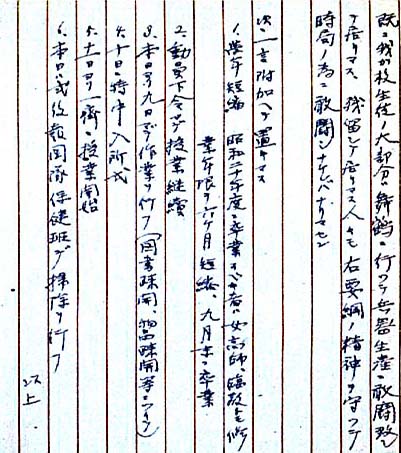 既ニ我ガ校生徒ノ大部分ハ舞鶴ニ行ツテ兵器生産ニ敢闘致シ
テ居リマス 残留シテ居リマス人々モ右要綱ノ精神ヲ守ツテ
時局ノ為ニ敢闘シナケレバナリマセン
次ニ一言附加ヘテ置キマス
1. 学年短縮 昭和二十年度ニ卒業スベキ者ハ女高師、臨教モ修
業年限ヲ六ケ月短縮、九月末ニ卒業
2. 動員下令マデ授業継続
3. 本日ヨリ九日マデ作業ヲ行フ(図書疎開、物品疎開等ニツイテ)
4. 十日ニ特中入所式
5. 十一日ヨリ一斉ニ授業開始
6. 本日ノ式後報国隊保健班ガ掃除ヲ行フ
以上